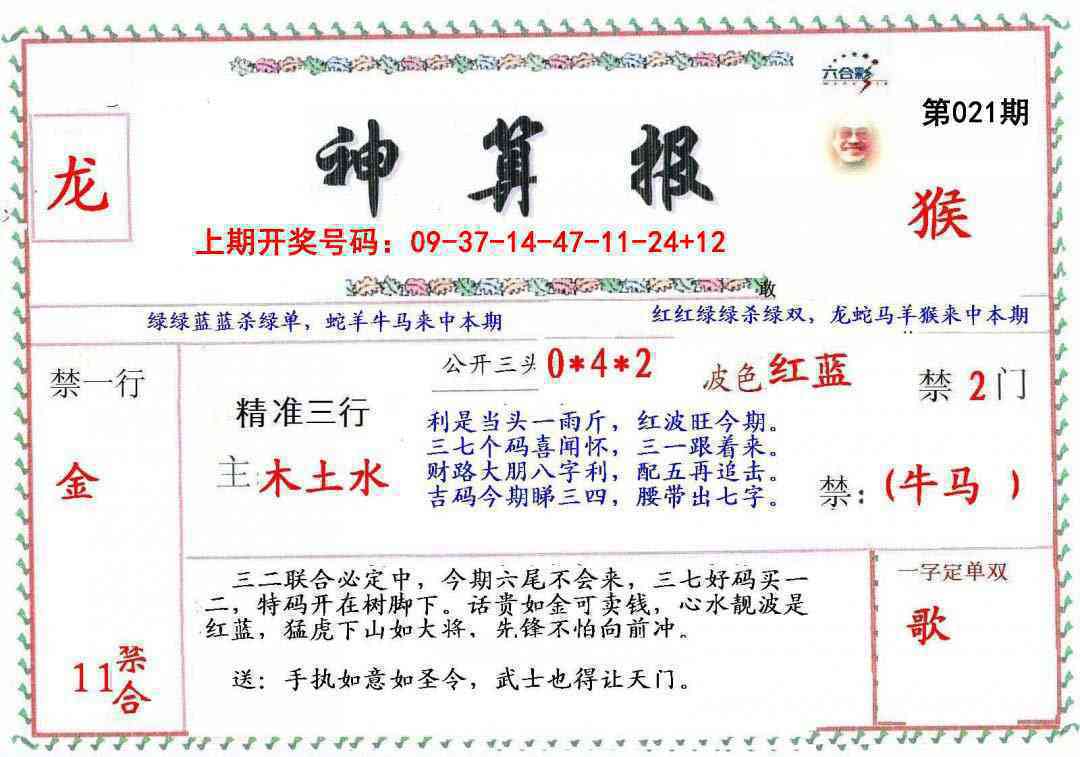 六合彩
第021期
神算报
龙
猴
上期开奖号码：09-37-14-47-11-24+12
敢
绿绿蓝蓝杀绿单，蛇羊牛马来中本期
红红绿绿杀绿双，龙蛇马羊猴来中本期
禁一行
金
11禁合
精准三行
主:木土水
公开三头 0*4*2
波色 红蓝
利是当头一雨斤，红波旺今期。
三七个码喜闻怀，三一跟着来。
财路大朋八字利，配五再追击。
吉码今期睇三四，腰带出七字。
禁2门
禁：(牛马 )
三二联合必定中，今期六尾不会来，三七好码买一
二，特码开在树脚下。话贵如金可卖钱，心水靓波是
红蓝，猛虎下山如大将，先锋不怕向前冲。
送：手执如意如圣令，武士也得让天门。
一字定单双
歌